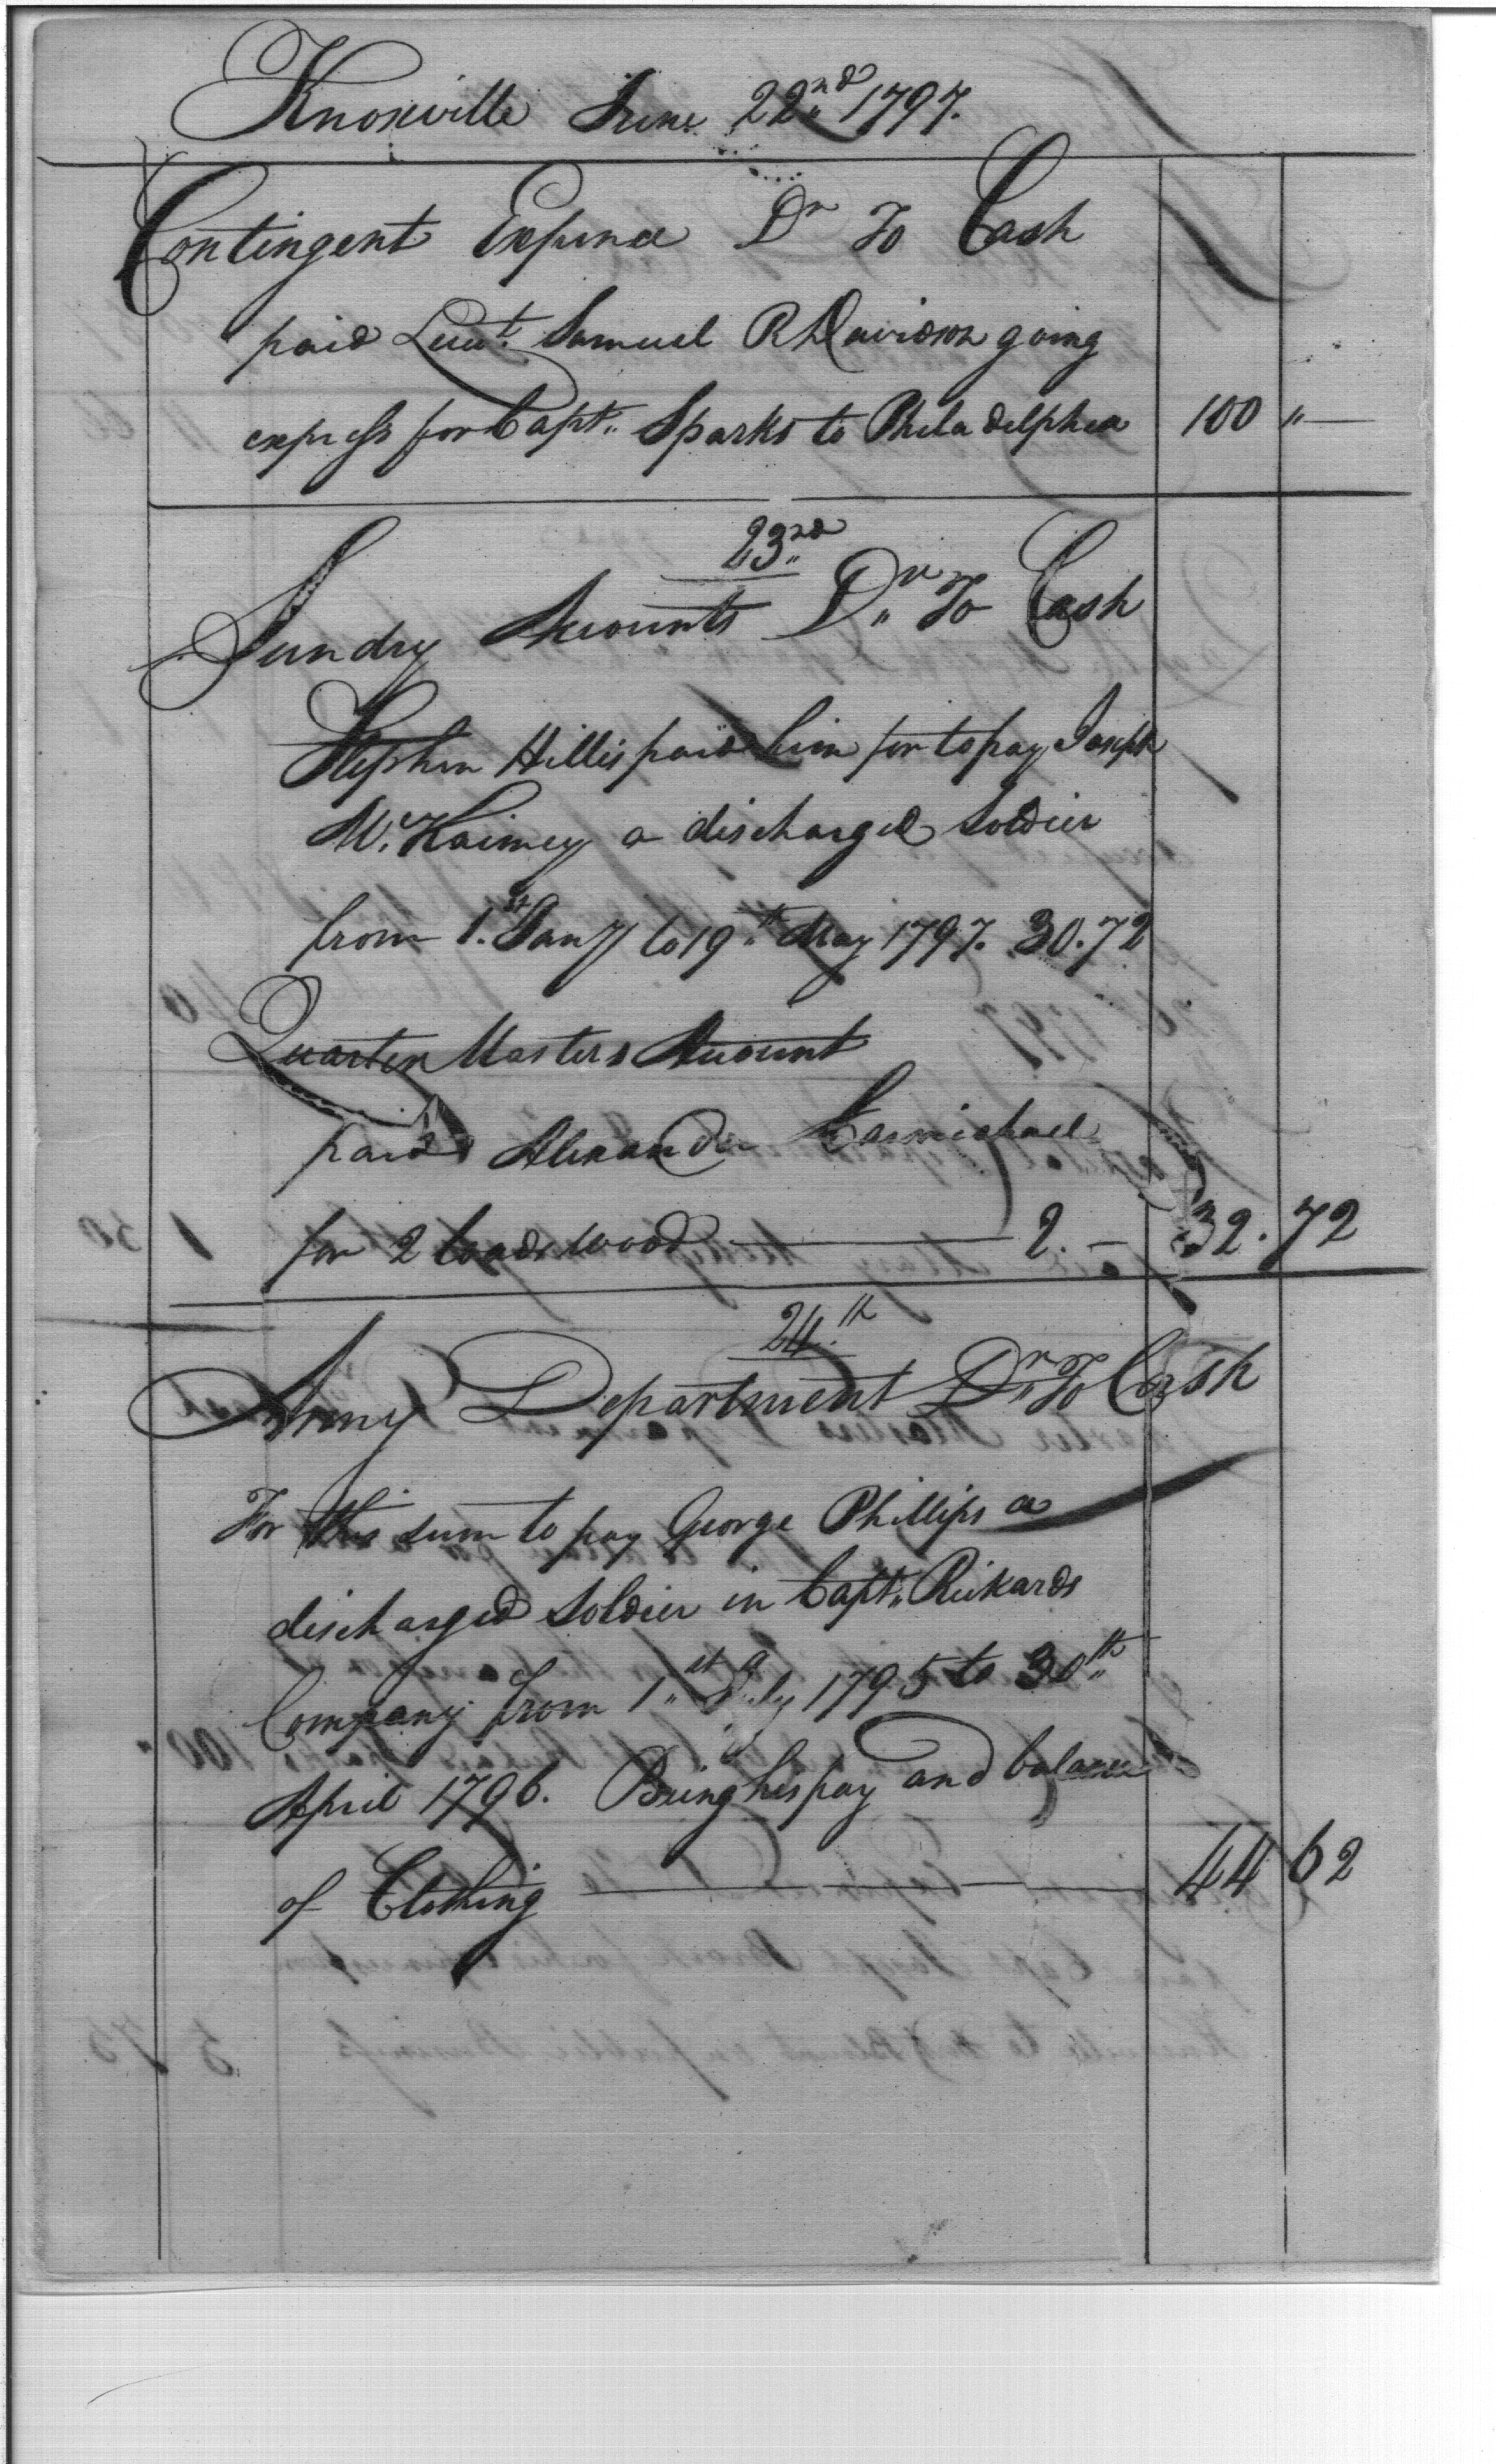 Knoxville June 22nd 1797.
Contingent Expence Dr To Cash
paid Lieut. Samuel R Davidson going
express for Capt. Sparks to Philadelphia 100 " —
23nd
Sundry Accounts Dr To Cash
Stephen Hillis paid him for to pay Joseph
Mc. Kaimey a discharged Soldier
from 1.st Jany to 19.th May 1797. 30.72
Quarter Masters Account
paid Alexander Carmichael
for 2 loads wood — 2. — 32.72
24.th
Army Department Dr To Cash
For this sum to pay George Phillips a
discharged Soldier in Capt. Rickards
Company from 1st July 1795 to 30th
April 1796. Being his pay and balance
of Clothing — 44 62